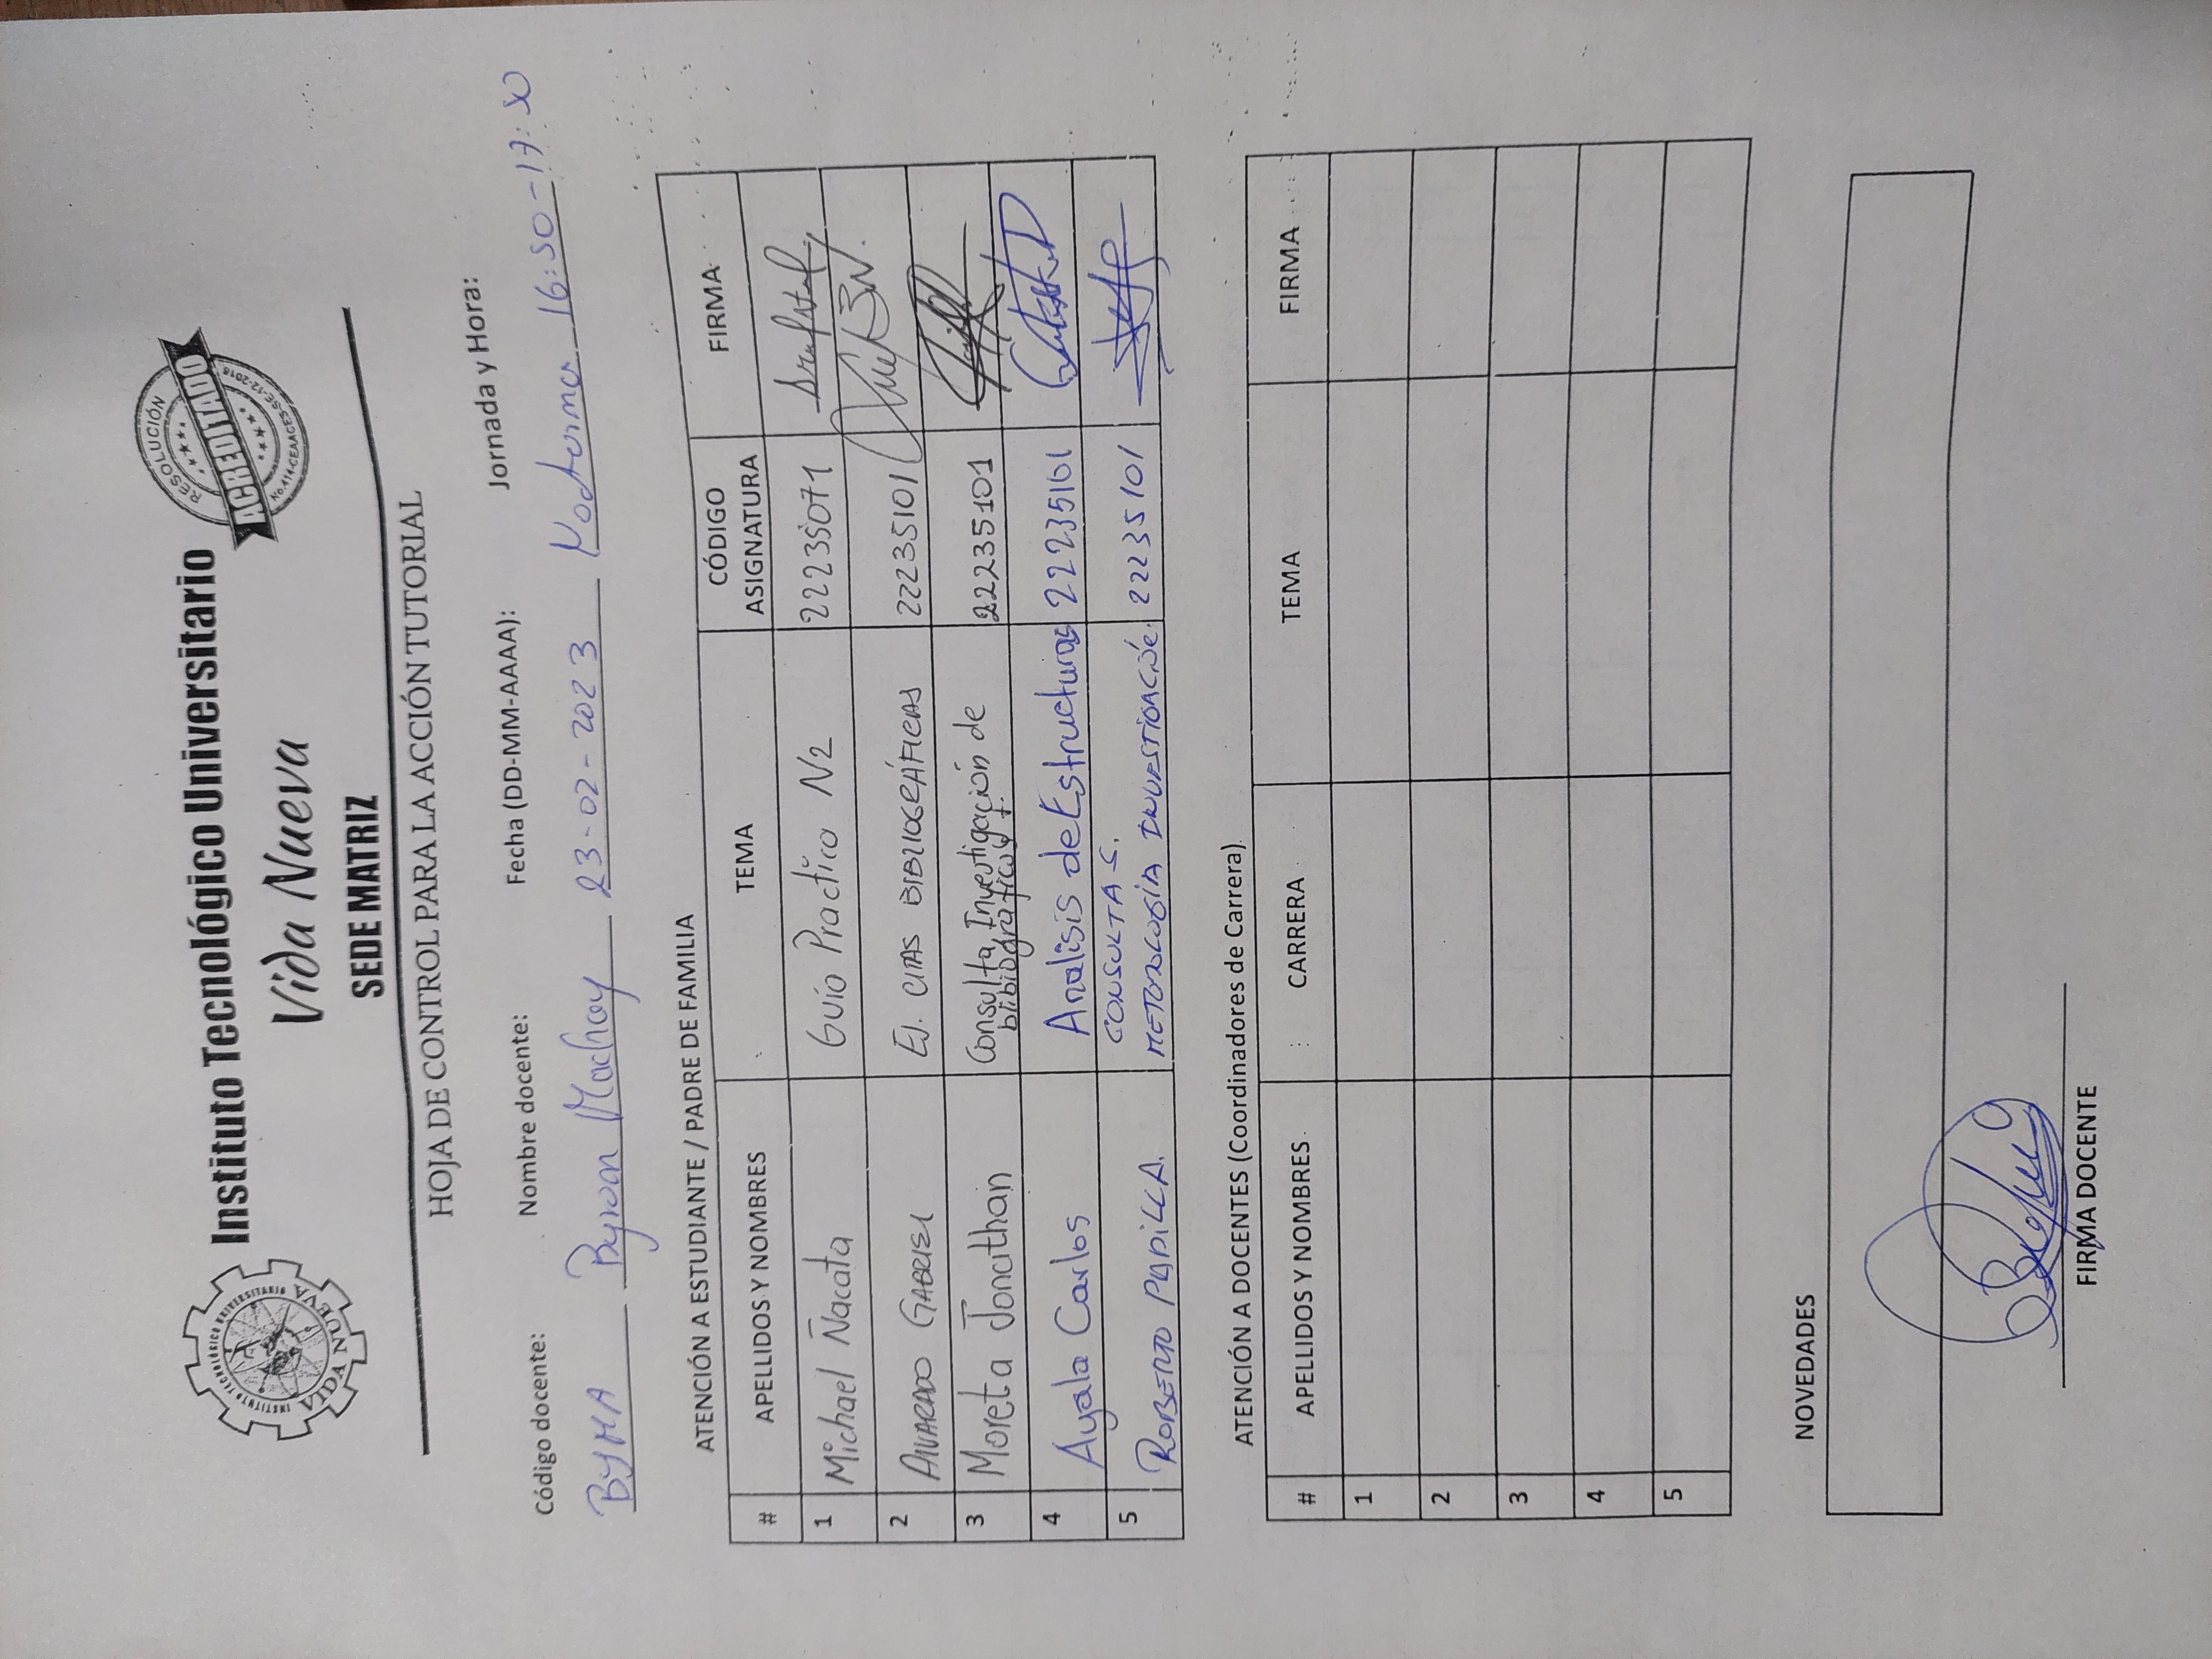 INSTITUTO TECNOLÓGICO UNIVERSITARIO
VIDA NUEVA
Instituto Tecnológico Universitario
Vida Nueva
SEDE MATRIZ
RESOLUCIÓN
ACREDITADO
No.414-CEAACES-SE-12-2016
HOJA DE CONTROL PARA LA ACCIÓN TUTORIAL
Código docente: Nombre docente: Fecha (DD-MM-AAAA): Jornada y Hora:
BYMA Byron Machay 23-02-2023 Nocturna 16:50-17:50
ATENCIÓN A ESTUDIANTE / PADRE DE FAMILIA
# APELLIDOS Y NOMBRES TEMA CÓDIGO ASIGNATURA FIRMA
1 Michael Ñacata Guío Practico N2 22235071
2 ALVARADO GABRIEL EJ. CITAS BIBLIOGRÁFICAS 22235101
3 Moreta Jonathan Consulta, Investigación de
blibiográficos t. 22235101
4 Ayala Carlos Analisis de Estructuras 22235101
5 ROBERTO PADILLA. CONSULTA S.
METODOLOGÍA INVESTIGACIÓN. 22235101
ATENCIÓN A DOCENTES (Coordinadores de Carrera)
# APELLIDOS Y NOMBRES CARRERA TEMA FIRMA
1
2
3
4
5
NOVEDADES
FIRMA DOCENTE